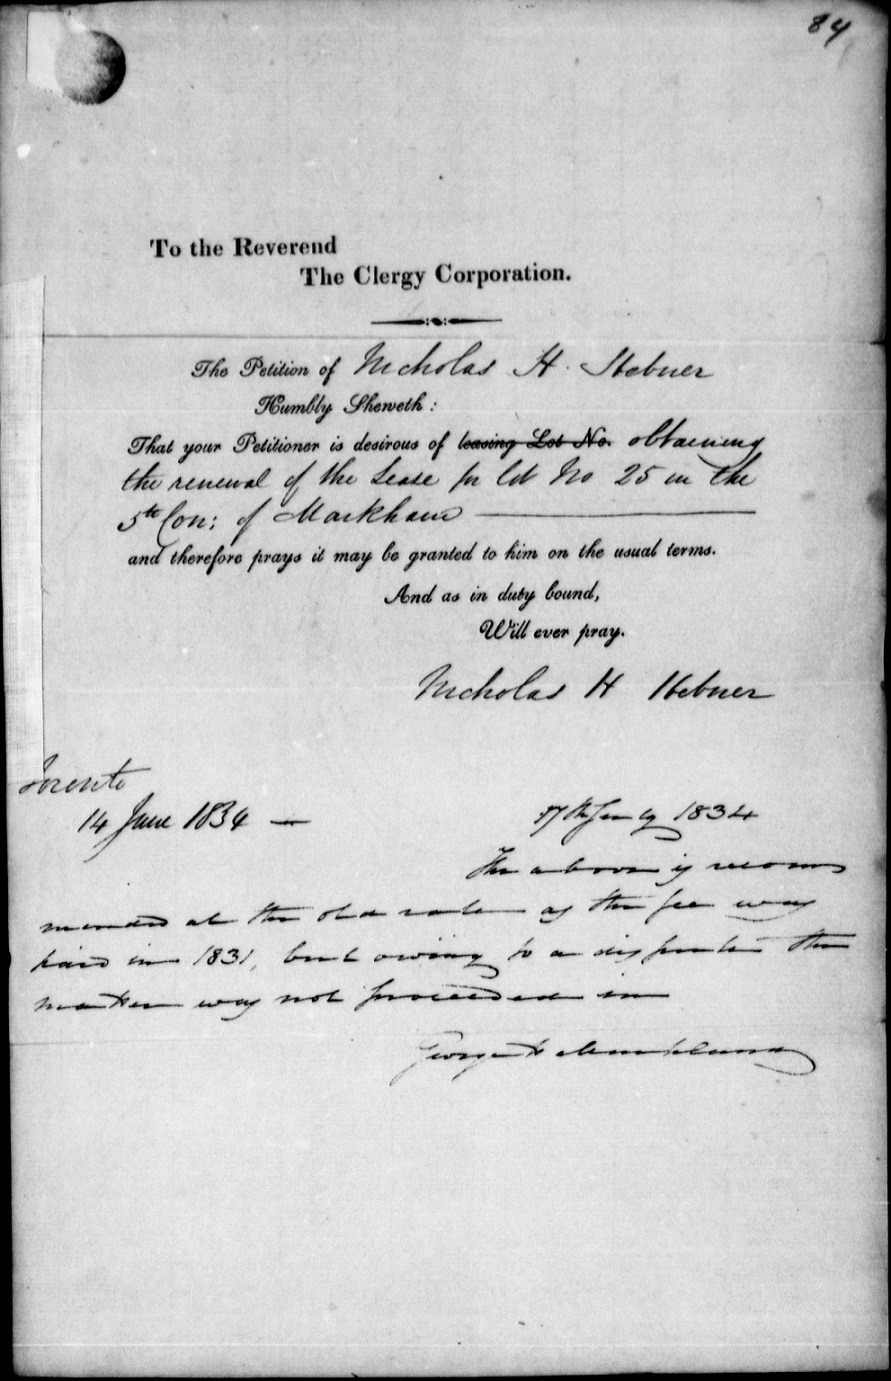 84
To the Reverend
The Clergy Corporation.
The Petition of Nicholas H. Stebner
Humbly Sheweth:
That your Petitioner is desirous of leasing Lot No. obtaining
the renewal of the Lease for lot No 25 in the
5th Con: of Markham
and therefore prays it may be granted to him on the usual terms.
And as in duty bound,
Will ever pray.
Nicholas H Stebner
Toronto
14 June 1834 —
17th 1834
The above is recom
mended at the old rate as the fee was
paid in 1831, but owing to a dispute the
matter was not proceeded in
George H Markland